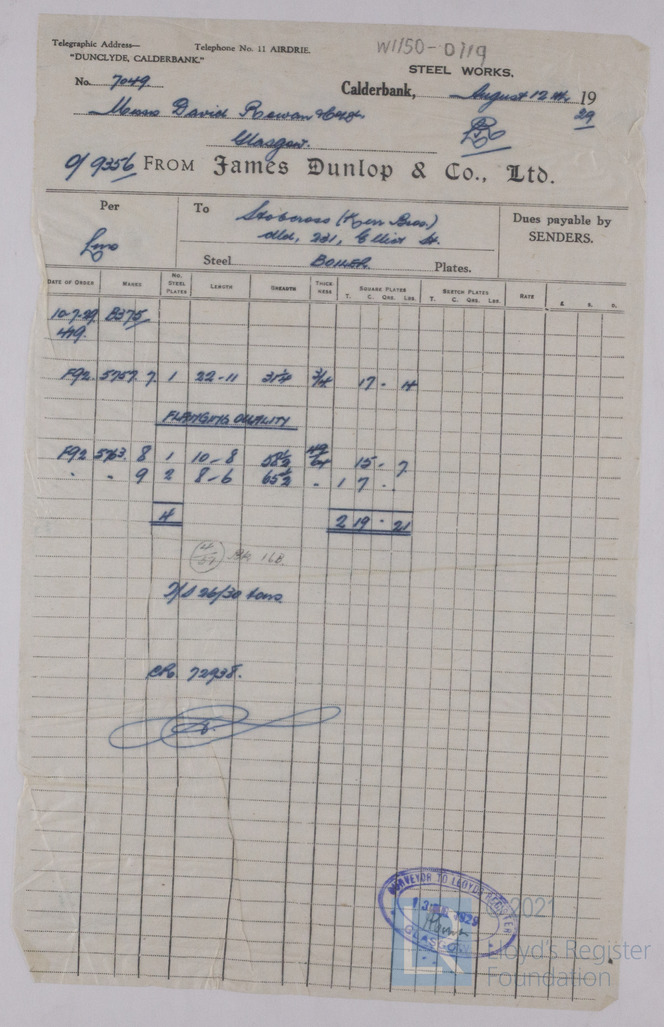 W1150-0119
Telegraphic Address—
"DUNCLYDE, CALDERBANK."
Telephone No. 11 AIRDRIE.
STEEL WORKS.
No. 7049
Calderbank, August 12th 19
29
Messrs David Rowan & Co Ltd.
Glasgow.
O/ 9356 FROM James Dunlop & Co., Ltd.
Per
To Stobcross (Kerr Bros.)
231, Elliot St.
Dues payable by
SENDERS.
Steel BOILER Plates.
DATE OF ORDER MARKS NO. STEEL PLATES LENGTH BREADTH THICKNESS SQUARE PLATES T. C. QRS. LBS. SKETCH PLATES T. C. QRS. LBS. RATE £ s. D.
10-7-29 B375
449.
F92 5757 7 1 22-11 31¼ 3/4 17 - 4
FLANGING QUALITY
F92 5763 8 1 10-8 58½ 49/64 15 - 7
" " 9 2 8-6 65½ " 1 7 - -
4 2 19 - 21
T/S 26/30 tons
72938.
SURVEYOR TO LLOYD'S REGISTER
1929
GLASGOW
2021
Lloyd's Register
Foundation